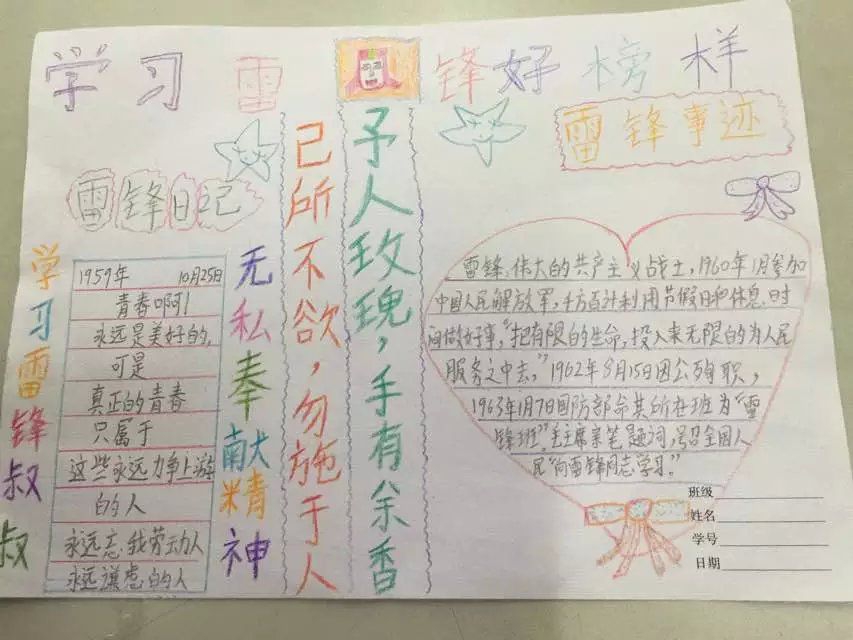 学习雷锋好榜样
雷锋事迹
雷锋日记
学习雷锋叔叔
1959年 10月25日
青春啊!
永远是美好的,
可是
真正的青春
只属于
这些永远力争上游
的人
永远忘我劳动人
永远谦虑的人
无私奉献精神
己所不欲,勿施于人
予人玫瑰,手有余香
雷锋,伟大的共产主义战士,1960年1月参加
中国人民解放军,千方百计利用节假日和休息时
间做好事,“把有限的生命,投入来无限的为人民
服务之中去,”1962年8月15日因公殉职,
1963年1月7日国防部命其所在班为“雷
锋班”,主席亲笔题词,号召全国人
民“向雷锋同志学习。”
班级
姓名
学号
日期